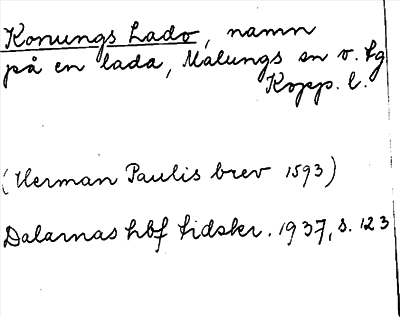 Konungs Lado, namn
på en lada, Malungs sn v. tg
Kopp. l.
(Herman Paulis brev 1593)
Dalarnas hbf tidskr. 1937, s. 123